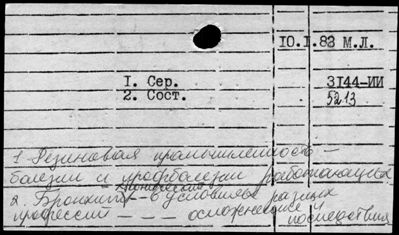 10.I.83 М.Л.
I. Сер. 3144-ИИ
2. Сост. 5213
1 Резиновая промышленность –
болезни и профболезни работающих
хронический
2. Бронхит – в условиях разных
профессий – – – осложнение и
последствия